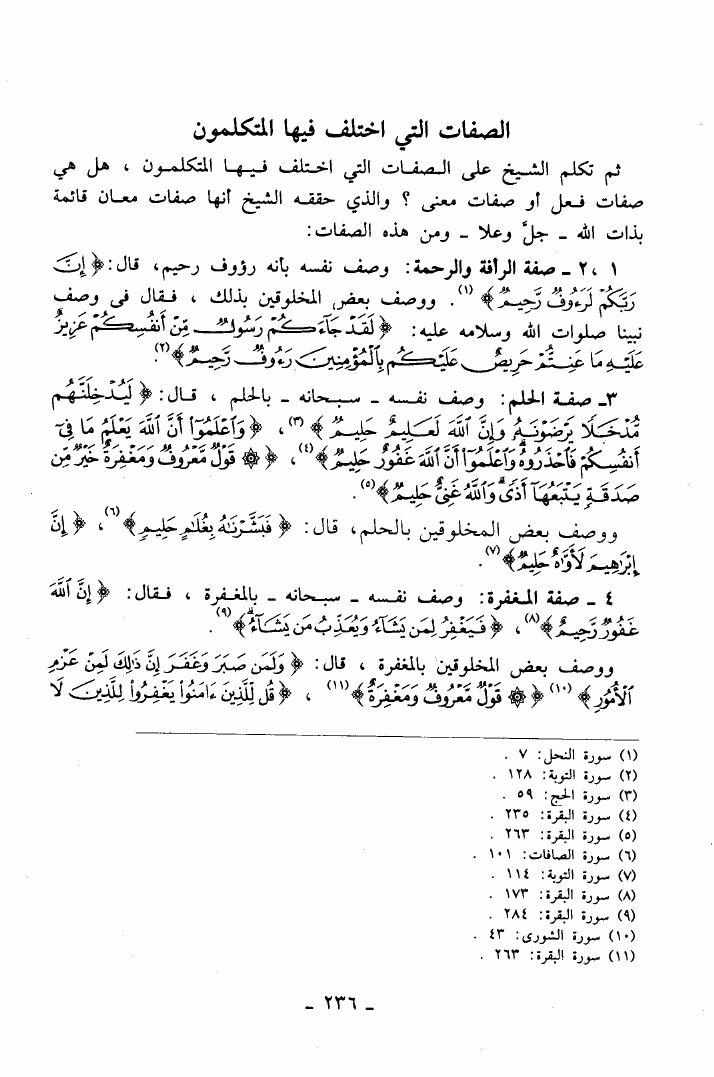 الصفات التي اختلف فيها المتكلمون
ثم تكلم الشيخ على الصفات التي اختلف فيها المتكلمون ، هل هي
صفات فعل أو صفات معنى ؟ والذي حققه الشيخ أنها صفات معان قائمة
بذات الله ـ جلَّ وعلا ـ ومن هذه الصفات:
١ ،٢ ـ صفة الرأفة والرحمة: وصف نفسه بأنه رؤوف رحيم، قال: ﴿ إِنَّ
رَبَّكُمْ لَرَءُوفٌ رَّحِيمٌ ﴾ (١). ووصف بعض المخلوقين بذلك ، فقال فى وصف
نبينا صلوات الله وسلامه عليه: ﴿ لَقَدْ جَآءَكُمْ رَسُولٌ مِّنْ أَنفُسِكُمْ عَزِيزٌ
عَلَيْهِ مَا عَنِتُّمْ حَرِيصٌ عَلَيْكُم بِالْمُؤْمِنِينَ رَءُوفٌ رَّحِيمٌ ﴾(٢).
٣ـ صفة الحلم: وصف نفسه ـ سبحانه ـ بالحلم ، قال: ﴿ لَيُدْخِلَنَّهُم
مُّدْخَلًا يَرْضَوْنَهُۥ وَإِنَّ ٱللَّهَ لَعَلِيمٌ حَلِيمٌ ﴾ (٣)، ﴿ وَٱعْلَمُوٓا۟ أَنَّ ٱللَّهَ يَعْلَمُ مَا فِىٓ
أَنفُسِكُمْ فَٱحْذَرُوهُ وَٱعْلَمُوٓا۟ أَنَّ ٱللَّهَ غَفُورٌ حَلِيمٌ ﴾(٤)، ﴿ ۞ قَوْلٌ مَّعْرُوفٌ وَمَغْفِرَةٌ خَيْرٌ مِّن
صَدَقَةٍ يَتْبَعُهَآ أَذًى وَٱللَّهُ غَنِىٌّ حَلِيمٌ ﴾(٥).
ووصف بعض المخلوقين بالحلم، قال: ﴿ فَبَشَّرْنَٰهُ بِغُلَٰمٍ حَلِيمٍ ﴾(٦)، ﴿ إِنَّ
إِبْرَٰهِيمَ لَأَوَّٰهٌ حَلِيمٌ ﴾(٧).
٤ ـ صفة المغفرة: وصف نفسه ـ سبحانه ـ بالمغفرة ، فقال: ﴿ إِنَّ ٱللَّهَ
غَفُورٌ رَّحِيمٌ ﴾(٨)، ﴿ فَيَغْفِرُ لِمَن يَشَآءُ وَيُعَذِّبُ مَن يَشَآءُ ﴾(٩).
ووصف بعض المخلوقين بالمغفرة ، قال: ﴿ وَلَمَن صَبَرَ وَغَفَرَ إِنَّ ذَٰلِكَ لَمِنْ عَزْمِ
ٱلْأُمُورِ ﴾ (١٠) ﴿ ۞ قَوْلٌ مَّعْرُوفٌ وَمَغْفِرَةٌ ﴾(١١) ، ﴿ قُل لِّلَّذِينَ ءَامَنُوا۟ يَغْفِرُوا۟ لِلَّذِينَ لَا
(١) سورة النحل: ٧ .
(٢) سورة التوبة: ١٢٨ .
(٣) سورة الحج: ٥٩ .
(٤) سورة البقرة: ٢٣٥ .
(٥) سورة البقرة: ٢٦٣ .
(٦) سورة الصافات: ١٠١ .
(٧) سورة التوبة: ١١٤ .
(٨) سورة البقرة: ١٧٣ .
(٩) سورة البقرة: ٢٨٤ .
(١٠) سورة الشورى: ٤٣ .
(١١) سورة البقرة: ٢٦٣ .
ـ ٢٣٦ ـ